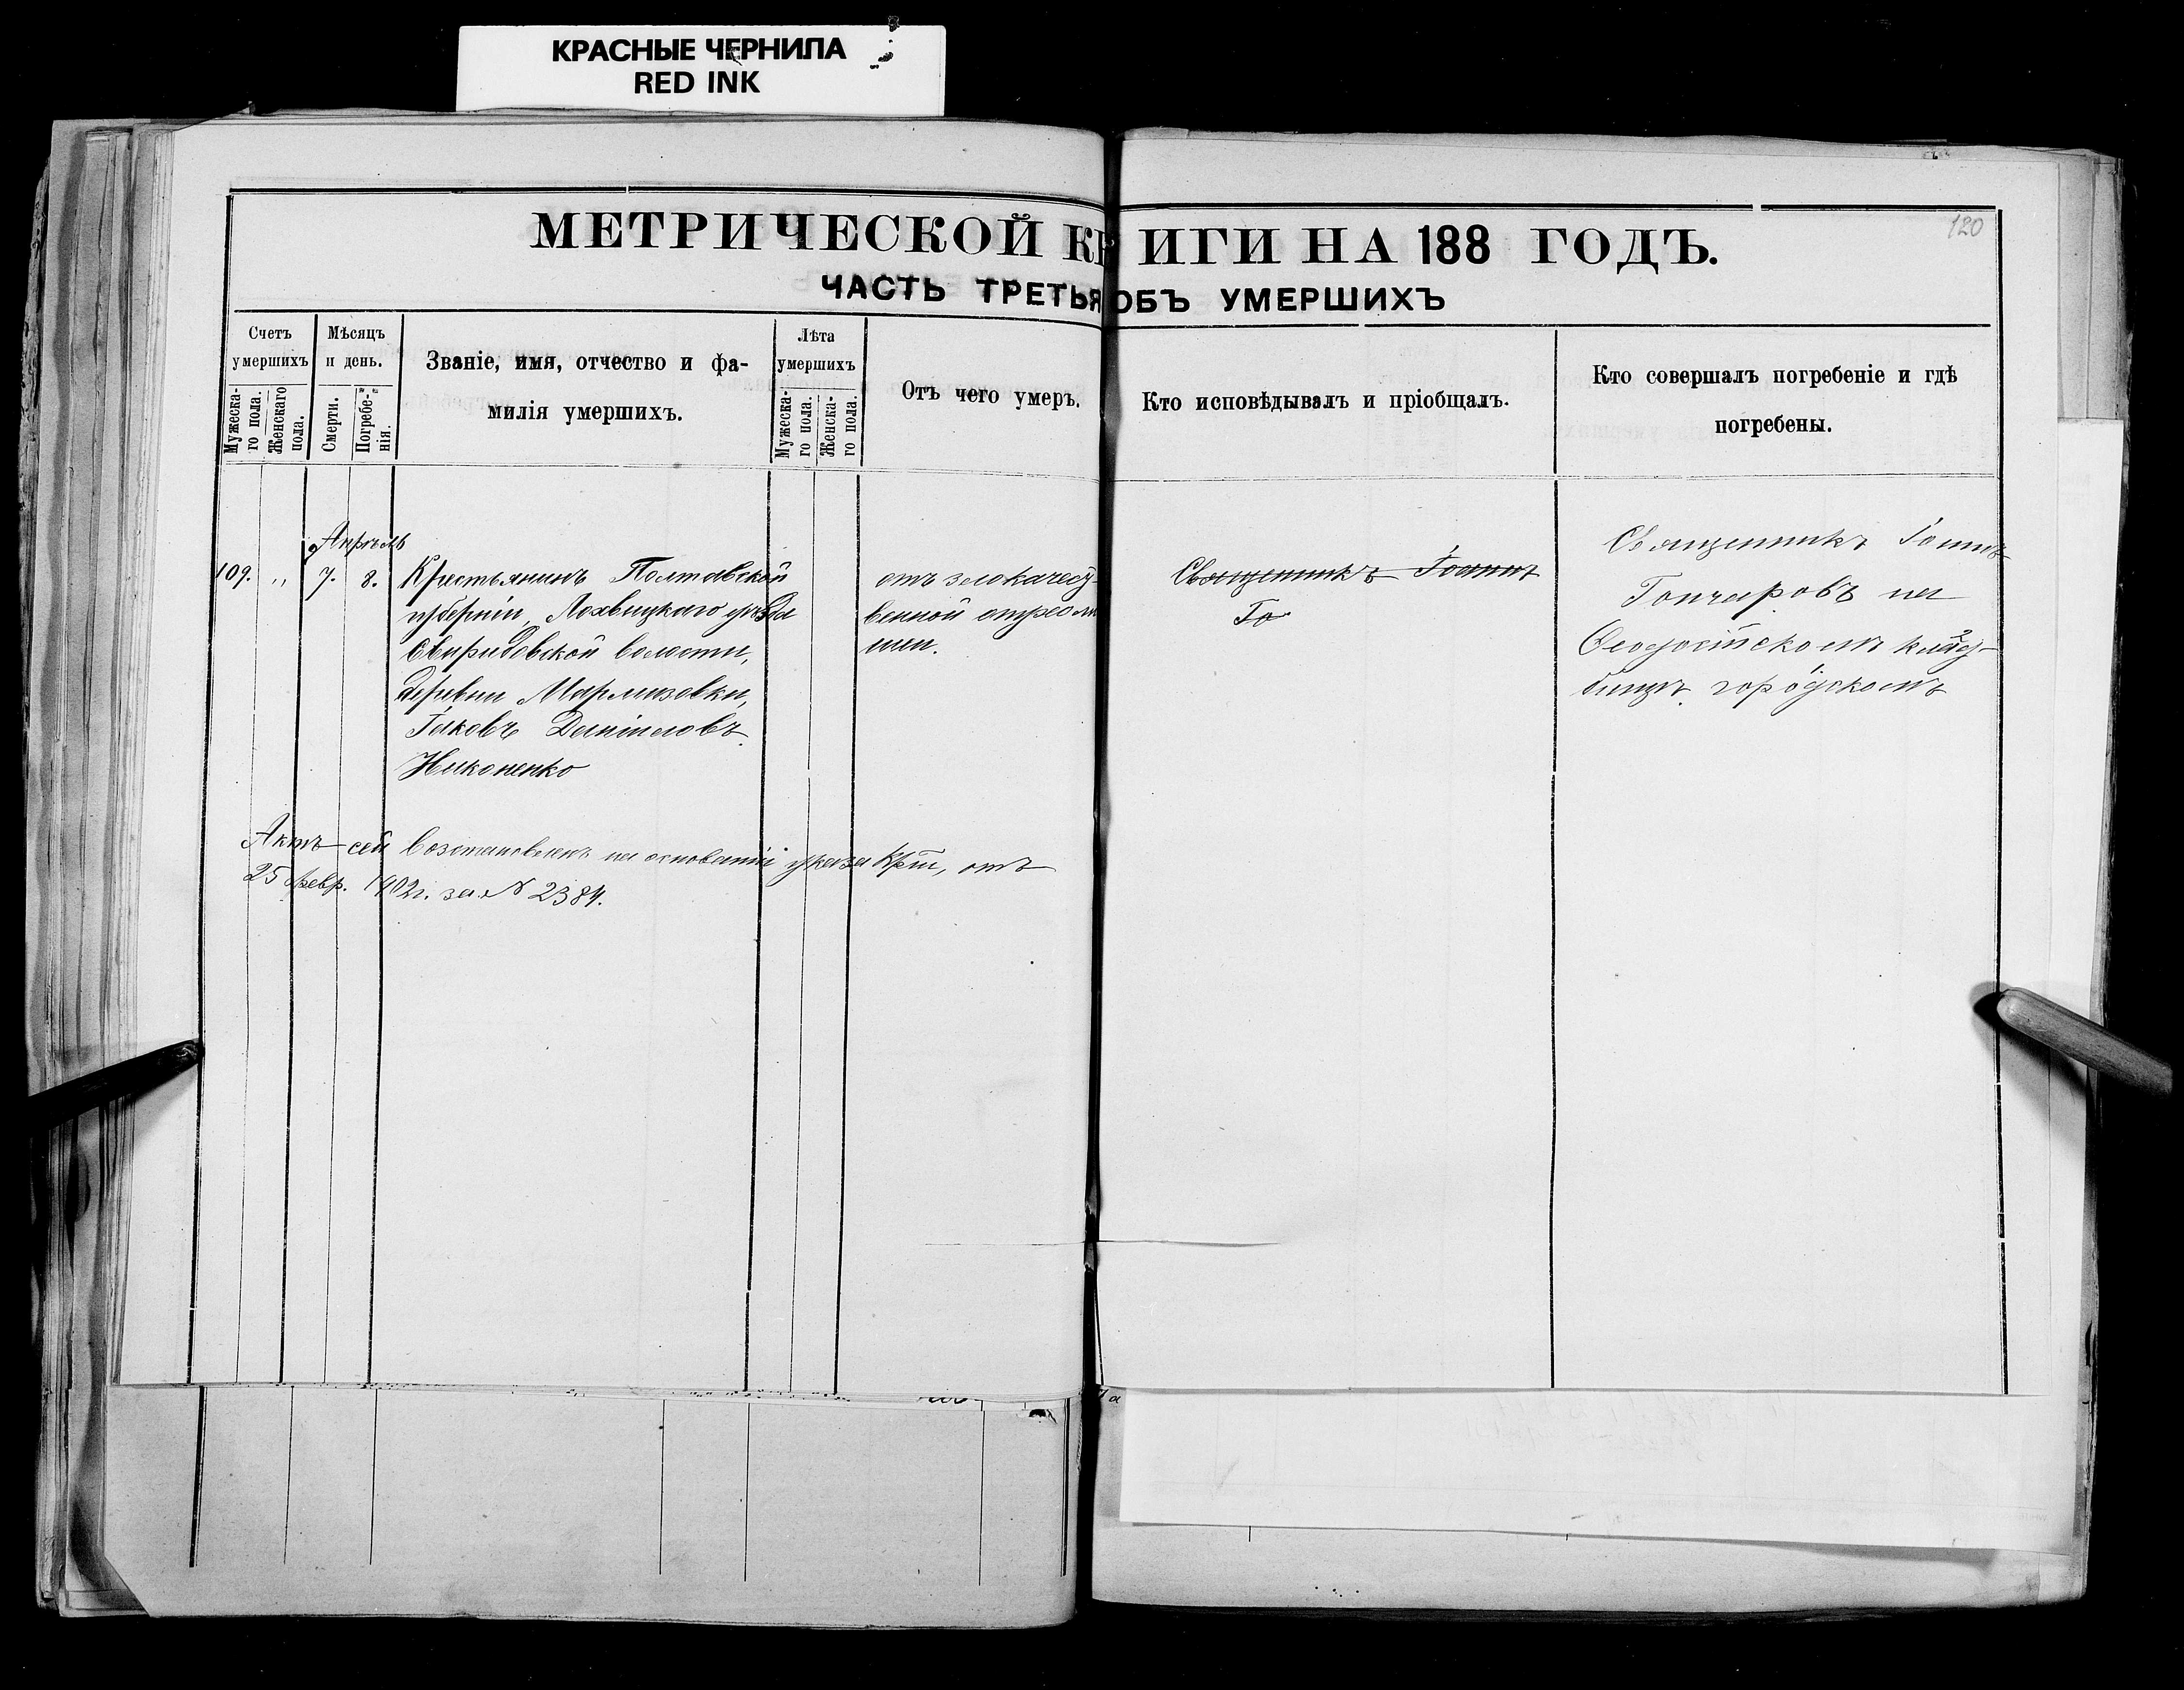 КРАСНЫЕ ЧЕРНИЛА
RED INK
120
МЕТРИЧЕСКОЙ КНИГИ НА 188 ГОДЪ.
ЧАСТЬ ТРЕТЬЯ ОБЪ УМЕРШИХЪ
Счетъ умершихъ
Мужеска-
го пола.
Женскаго
пола.
Мѣсяцъ
и день.
Смерти.
Погребе-
нія.
Званіе, имя, отчество и фа-
милія умершихъ.
Лѣта
умершихъ
Мужеска-
го пола.
Женска-
го пола.
Отъ чего умеръ.
Кто исповѣдывалъ и пріобщалъ.
Кто совершалъ погребеніе и гдѣ
погребены.
Апрѣль
109. „ 7. 8.
Крестьянинъ Полтавской
губерніи, Лохвицкаго уѣзда
Свиридовской волости,
деревни Марлизовки,
Іаковъ Даніиловъ
Никоненко
отъ злокачест-
венной
Священникъ Іоаннъ
Го
Священникъ Іоаннъ
Гончаровъ на
Ѳеодосійскомъ клад-
бищѣ городскомъ
Актъ сей возстановленъ на основаніи указа отъ
25 Февр. 1902 г. за № 2384.